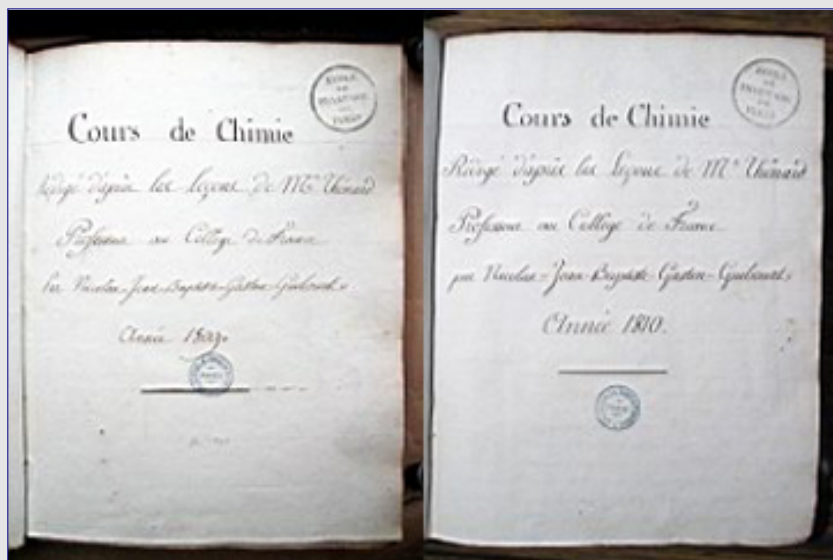 ECOLE
DE
PHARMACIE
PARIS
Cours de Chimie
Rédigé d'après les leçons de Mr. Thénard
Professeur au Collège de France
Par Nicolas-Jean-Baptiste-Gaston-Guibourt.
Année
ECOLE
DE
PHARMACIE
DE
PARIS
Cours de Chimie
Rédigé d'après les leçons de Mr. Thénard
Professeur au Collège de France
par Nicolas-Jean-Baptiste-Gaston-Guibourt.
Année 1810.